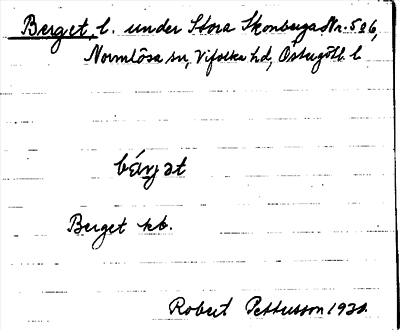 Berget, l. under Stora Skonberga Nr. 5 o 6,
Normlösa sn, Vifolka hd, Östergötl. l.
Berget kb.
Robert Pettersson 1930.